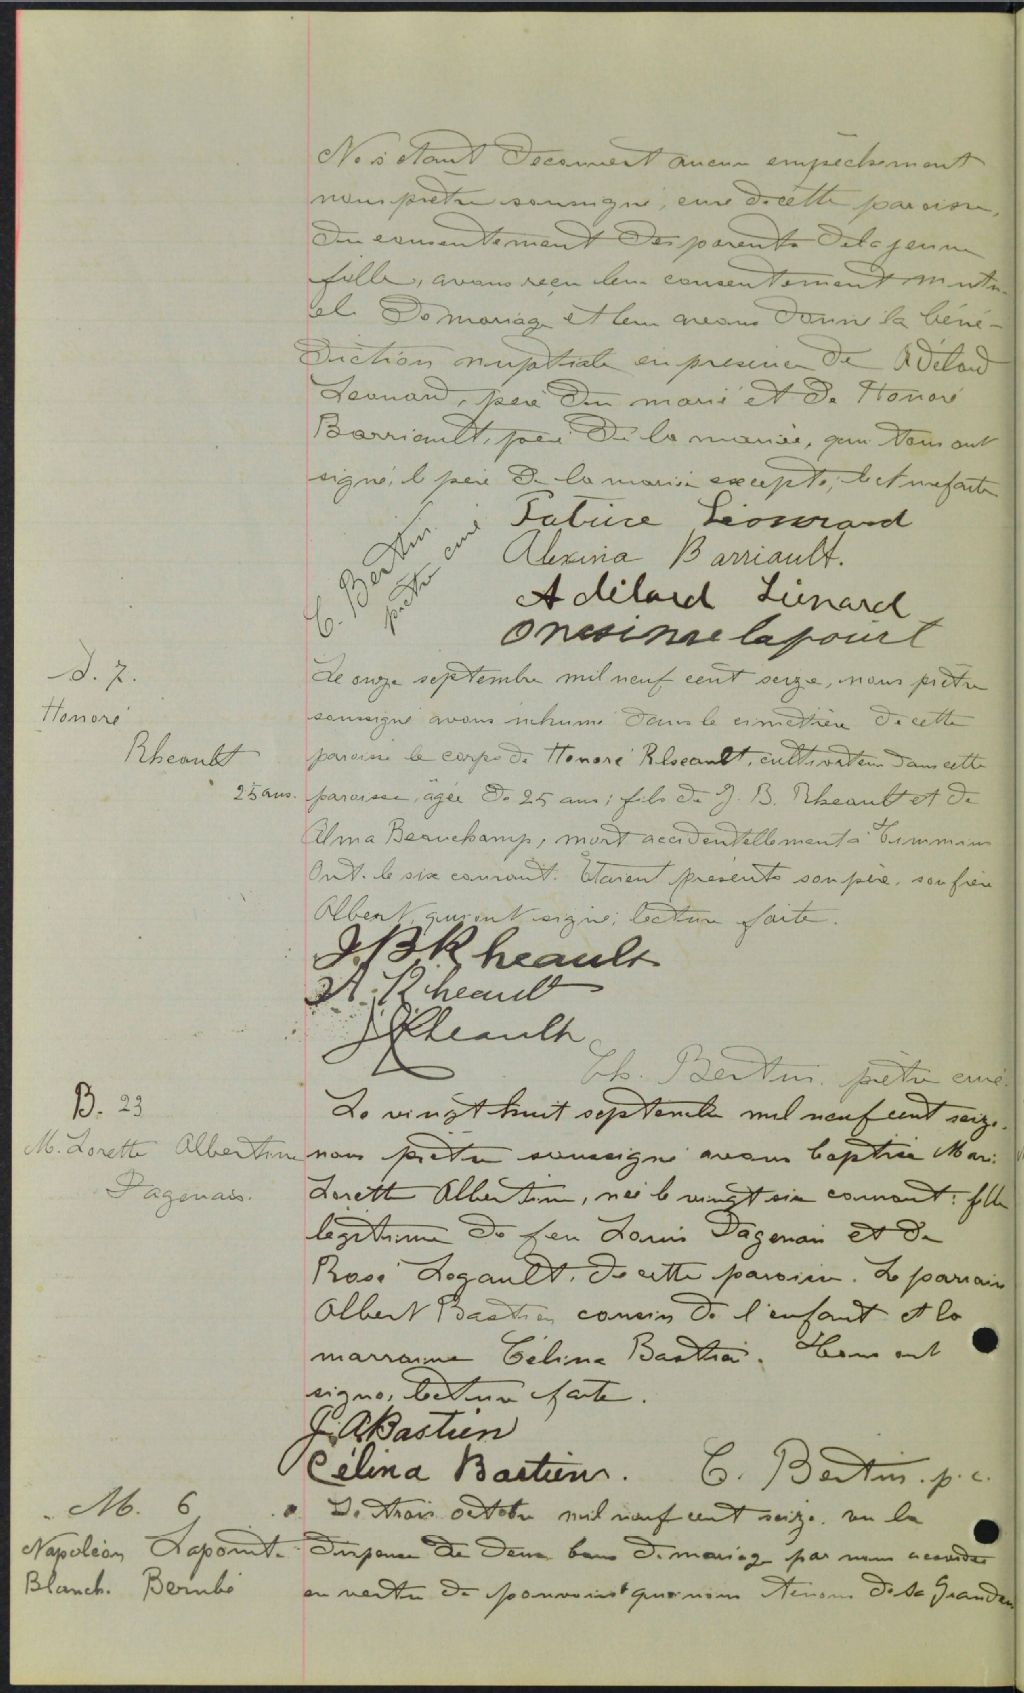 Ne s'étant découvert aucun empêchement
nous prêtre soussigné, curé de cette paroisse,
du consentement des parents de la jeune
fille, avons reçu leur consentement mutu-
el de mariage et leur avons donné la béné-
diction nuptiale en présence de Adélard
Leonard, père du marié et de Honoré
Barriault, père de la mariée, qui tous ont
signé, le père de la mariée excepté, lecture faite
Patrice Léonard
Alexina Barriault.
Adélard Liénard
Onesime lapoint
C. Bertin
prêtre curé
S. 7.
Honoré
Rheault
25 ans.
Le onze septembre mil neuf cent seize, nous prêtre
soussigné avons inhumé dans le cimetière de cette
paroisse le corps de Honoré Rheault, cultivateur dans cette
paroisse, âgée de 25 ans; fils de J. B. Rheault et de
Alma Beauchamp, mort accidentellement à Timmins
Ont. le six courant. Etaient présents son père, son frère
Albert, qui ont signé; lecture faite.
J. B. Rheault
A. Rheault
J Rheault
Ch. Bertin. prêtre curé.
B. 23
M. Lorette Albertine
Dagenais.
Le vingt huit septembre mil neuf cent seize.
nous prêtre soussigné avons baptisé Marie
Lorette Albertine, née le vingt six courant: fille
légitime de feu Louis Dagenais et de
Rose Legault, de cette paroisse. Le parrain
Albert Bastien cousin de l'enfant et la
marraine Célina Bastien. tous ont
signé, lecture faite.
J. A Bastien
Célina Bastien. C. Bertin. p. c.
M. 6
Napoléon Lapointe
Blanch. Berubé
Le trois octobre mil neuf cent seize. vu la
dispense de deux bans de mariage par nous accordée
en vertu de pouvoirs que nous tenons de Sa Grandeur